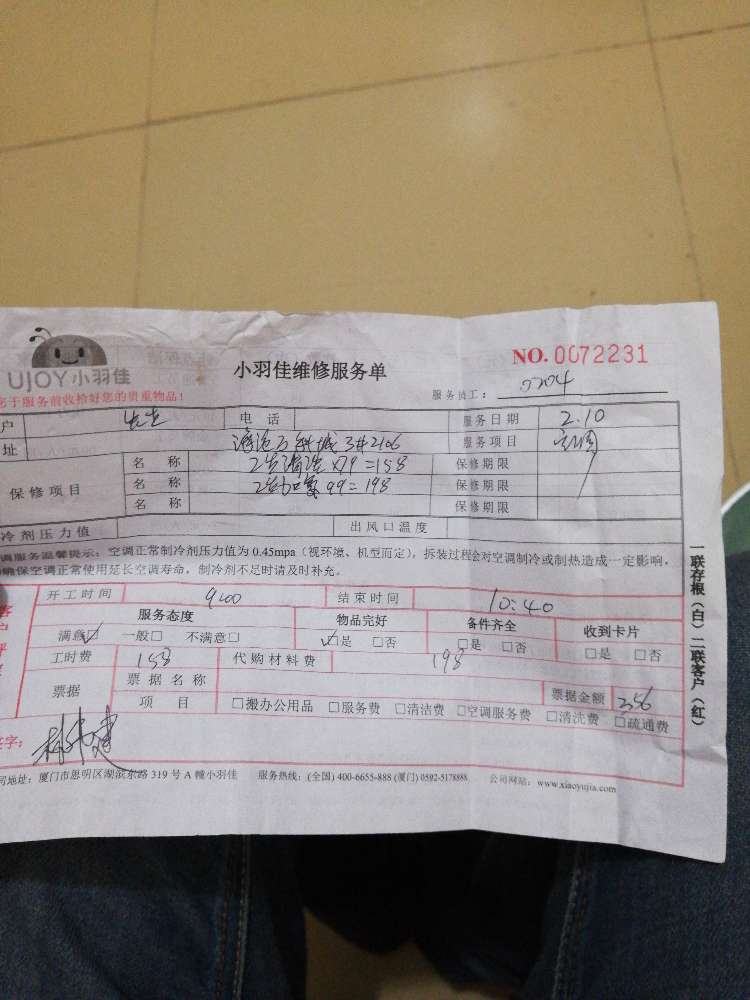 NO. 0072231
UJOY小羽佳
小羽佳维修服务单
您于服务前收拾好您的贵重物品！
服务员工：0204
户 先生 电 话 服务日期 2.10
址 3#2106 服务项目
保修项目
名 称 2台清洗 X79=158 保修期限
名 称 99=198 保修期限
名 称 保修期限
冷剂压力值 出风口温度
调服务温馨提示：空调正常制冷剂压力值为 0.45mpa（视环境、机型而定），拆装过程会对空调制冷或制热造成一定影响，
确保空调正常使用延长空调寿命，制冷剂不足时请及时补充。
开工时间 9:00 结束时间 10:40
服务态度 物品完好 备件齐全 收到卡片
满意☑ 一般□ 不满意□ ☑是 □否 □是 □否 □是 □否
工时费 158 代购材料费 198
票据 票据名称 票据金额 356
项 目 □搬办公用品 □服务费 □清洁费 □空调服务费 □清洗费 □疏通费
签字：
司地址：厦门市思明区湖滨东路 319 号 A 幢小羽佳 服务热线：(全国) 400-6655-888 (厦门) 0592-5178888 公司网站：www.xiaoyujia.com
一联存根（白）二联客户（红）